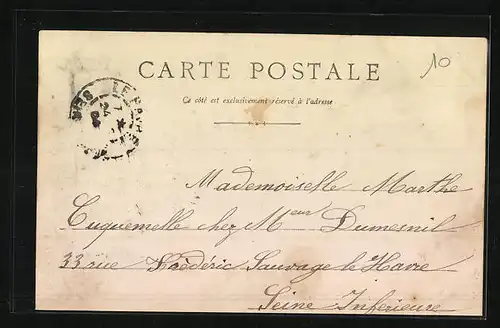 10
CARTE POSTALE
Ce côté est exclusivement réservé à l'adresse
Mademoiselle Marthe
Cuquemelle chez Meur Dumesnil
33 rue Frédéric Sauvage le Havre
Seine Inférieure